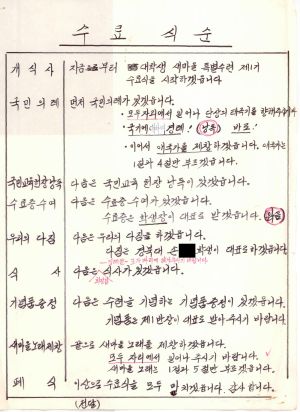 수료 식순
개식사 지금부터 대학생 새마을 특별수련 제1기
수료식을 시작하겠습니다.
국민의례 먼저 국민의례가 있겠습니다.
· 모두 자리에서 일어나 단상의 태극기를 향해주십시
· 국기에 대하여 경례! (낭독) 바로!
· 이어서 애국가를 제창하겠습니다. 애국가는
1절사 4절만 부르겠습니다.
국민교육헌장낭독 다음은 국민교육 헌장 낭독이 있겠습니다.
수료증수여 다음은 수료증 수여가 있겠습니다.
수료증은 학생장이 대표로 받겠습니다.
우리의 다짐 다음은 우리의 다짐을 하겠습니다.
다짐은 경북대 손 학생이 대표로 하겠습니다.
식사 다음은 식사가 있겠습니다.
기념품증정 다음은 수련을 기념하는 기념품 증정이 있겠습니다.
기념품은 제1반장이 대표로 받아 주시기 바랍니다.
새마을노래제창 끝으로 새마을 노래를 제창하겠습니다.
모두 자리에서 일어나 주시기 바랍니다.
새마을 노래는 1절과 5절만 부르겠습니다.
폐식 이상으로 수료식을 모두 마치겠습니다. 감사합니다.